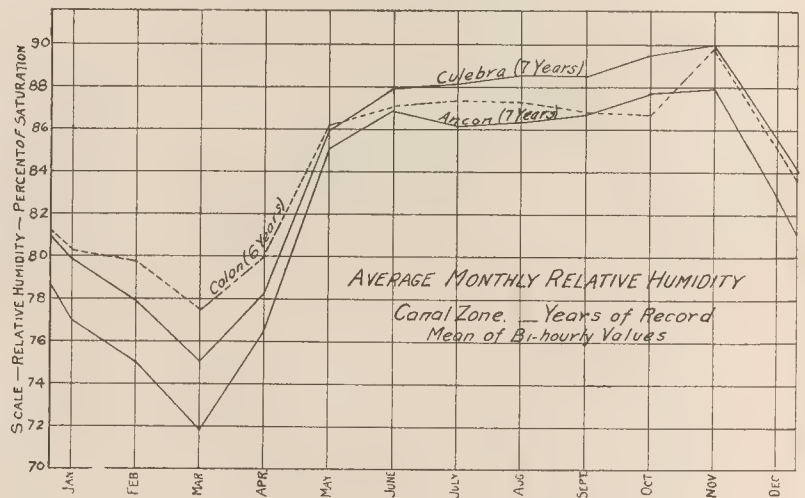 SCALE — RELATIVE HUMIDITY — PERCENT OF SATURATION
90
88
86
84
82
80
78
76
74
72
70
Culebra (7 Years)
Ancon (7 Years)
Colon (6 Years)
AVERAGE MONTHLY RELATIVE HUMIDITY
Canal Zone. — Years of Record
Mean of Bi-hourly Values
JAN
FEB
MAR
APR.
MAY
JUNE
JULY
AUG
SEPT.
OCT
NOV
DEC